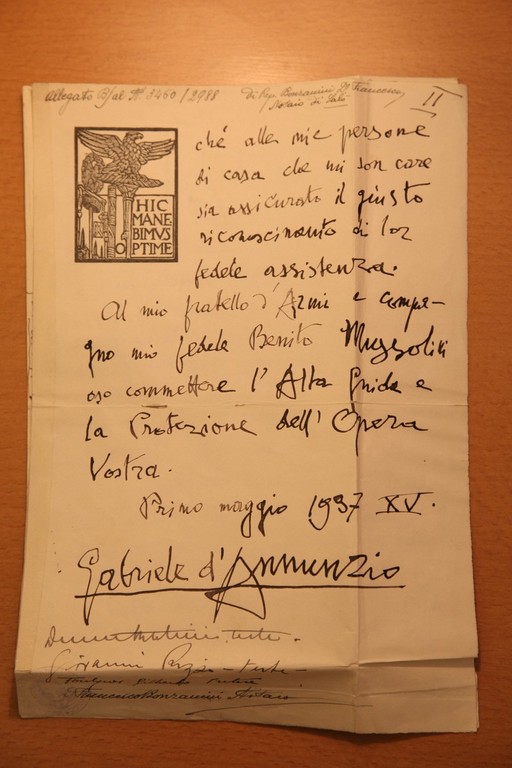 Allegato B/al Nº 3460/2988
Di Rep. Bonzanini Dr Francesco
Notaio di Salò
II
HIC
MANE
BIMVS
OPTIME
ché alle mie persone
di casa che mi son care
sia assicurato il giusto
riconoscimento di lor
fedele assistenza.
Al mio fratello d'Armi e compa-
gno mio fedele Benito Mussolini
oso commettere l'Alta Guida e
la Protezione dell'Opera
Vostra.
Primo maggio 1937 XV.
Gabriele d'Annunzio
teste.
Giovanni teste
Francesco Bonzanini Notaio